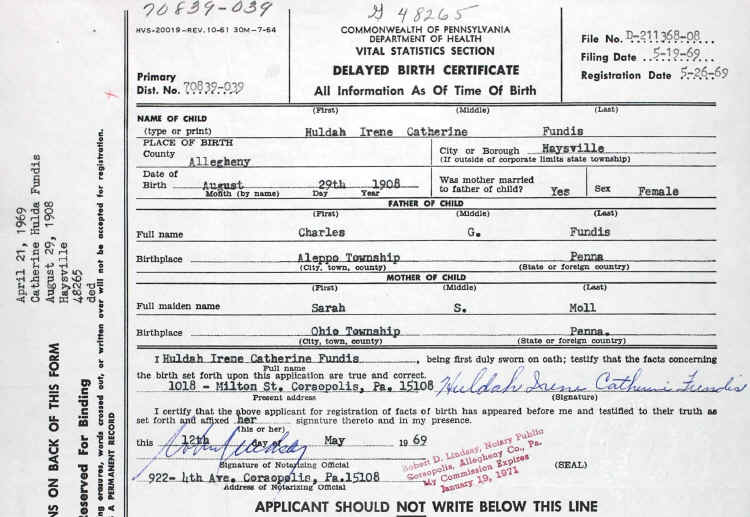 70839-039
G 48265
HVS-20019-REV.10-61 30M-7-64
COMMONWEALTH OF PENNSYLVANIA
DEPARTMENT OF HEALTH
VITAL STATISTICS SECTION
File No. D-211368-08
Filing Date 5-19-69
Registration Date 5-26-69
Primary
Dist. No. 70839-039
DELAYED BIRTH CERTIFICATE
All Information As Of Time Of Birth
(First) (Middle) (Last)
NAME OF CHILD
(type or print) Huldah Irene Catherine Fundis
PLACE OF BIRTH
County Allegheny
City or Borough Haysville
(If outside of corporate limits state township)
Date of
Birth August 29th 1908
Month (by name) Day Year
Was mother married
to father of child? Yes Sex Female
FATHER OF CHILD
(First) (Middle) (Last)
Full name Charles G. Fundis
Birthplace Aleppo Township Penna
(City, town, county) (State or foreign country)
MOTHER OF CHILD
(First) (Middle) (Last)
Full maiden name Sarah S. Moll
Birthplace Ohio Township Penna.
(City, town, county) (State or foreign country)
I Huldah Irene Catherine Fundis, being first duly sworn on oath; testify that the facts concerning
Full name
the birth set forth upon this application are true and correct.
1018 - Milton St. Coraopolis, Pa. 15108 Huldah Irene Catherine Fundis
Present address (Signature)
I certify that the above applicant for registration of facts of birth has appeared before me and testified to their truth as
set forth and affixed her signature thereto and in my presence.
(his or her)
this 12th day of May 1969
Signature of Notarizing Official
Robert D. Lindsay, Notary Public
Coraopolis, Allegheny Co., Pa.
My Commission Expires
January 19, 1971
(SEAL)
922- 4th Ave. Coraopolis, Pa.15108
Address of Notarizing Official
APPLICANT SHOULD NOT WRITE BELOW THIS LINE
April 21, 1969
Catherine Hulda Fundis
August 29, 1908
Haysville
48265
ded
NS ON BACK OF THIS FORM
eserved For Binding
ng erasures, words crossed out, or written over will not be accepted for registration.
A PERMANENT RECORD